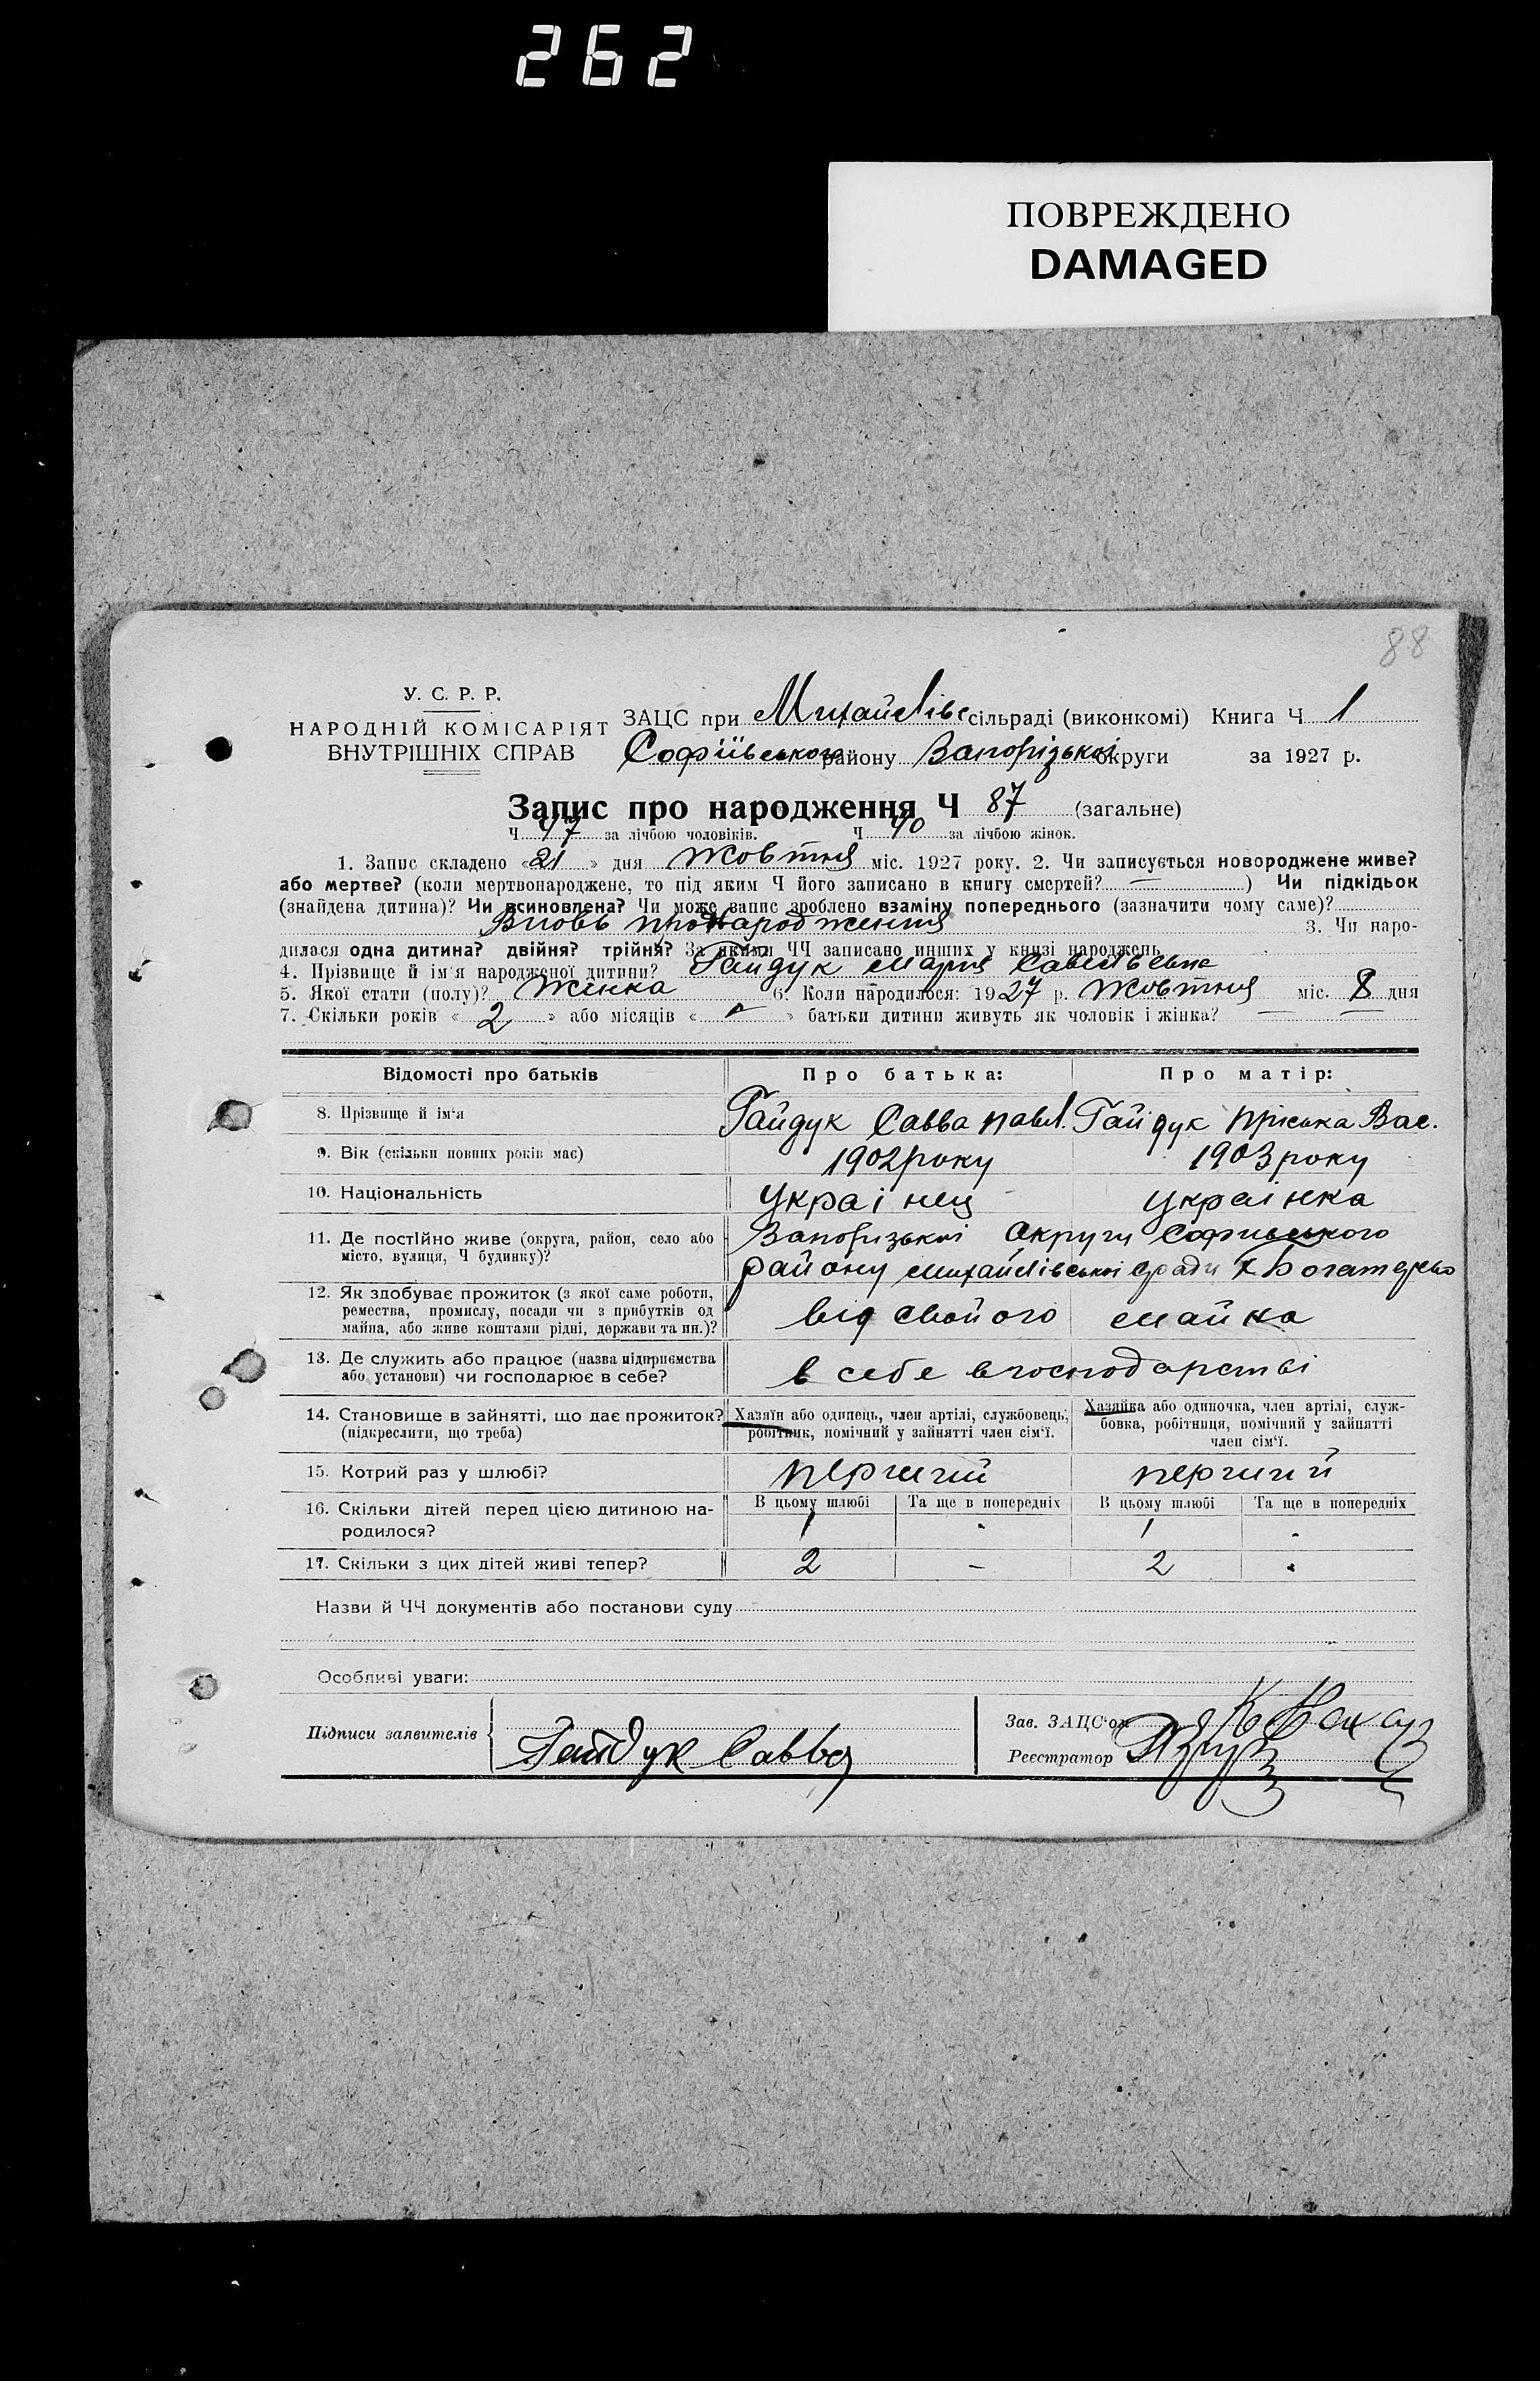 262
ПОВРЕЖДЕНО
DAMAGED
88
У. С. Р. Р.
НАРОДНІЙ КОМІСАРІЯТ
ВНУТРІШНІХ СПРАВ
ЗАЦС при Михайлівс сільраді (виконкомі) Книга Ч 1
Софіївського району Запорізької округи за 1927 р.
Запис про народження Ч 87 (загальне)
Ч 47 за лічбою чоловіків. Ч 40 за лічбою жінок.
1. Запис складено «21» дня Жовтня міс. 1927 року. 2. Чи записується новороджене живе?
або мертве? (коли мертвонароджене, то під яким Ч його записано в книгу смертей? —) Чи підкідьок
(знайдена дитина)? Чи всиновлена? Чи може запис зроблено взаміну попереднього (зазначити чому саме)?
Вновь про народження 3. Чи наро-
дилася одна дитина? двійня? трійня? За якими ЧЧ записано инших у книзі народжень
4. Прізвище й ім'я народженої дитини? Гайдук Мария Савельевна
5. Якої стати (полу)? Жінка 6. Коли народилося: 1927 р. Жовтня міс. 8 дня
7. Скільки років «2» або місяців « » батьки дитини живуть як чоловік і жінка? — —
Відомості про батьків Про батька: Про матір:
8. Прізвище й ім'я Гайдук Савва Павл. Гайдук Пріська Вас.
9. Вік (скільки повних років має) 1902 року 1903 року
10. Національність Украінец Украінка
11. Де постійно живе (округа, район, село або Запорізькоі Округи Софиевського
місто, вулиця, Ч будинку)? району Михайлівськоі с/ради х Богатирево
12. Як здобуває прожиток (з якої саме роботи,
ремества, промислу, посади чи з прибутків од від свойого майна
майна, або живе коштами рідні, держави та ин.)?
13. Де служить або працює (назва підприємства в себе в господарстві
або установи) чи господарює в себе?
14. Становище в зайнятті, що дає прожиток? Хазяїн або одинець, член артілі, службовець, Хазяйка або одиночка, член артілі, служ-
(підкреслити, що треба) робітник, помічний у зайнятті член сім'ї. бовка, робітниця, помічний у зайнятті
член сім'ї.
15. Котрий раз у шлюбі? перший перший
16. Скільки дітей перед цією дитиною на- В цьому шлюбі Та ще в попередніх В цьому шлюбі Та ще в попередніх
родилося? 1 - 1 -
17. Скільки з цих дітей живі тепер? 2 - 2 -
Назви й ЧЧ документів або постанови суду
Особливі уваги:
Підписи заявителів Гайдук Савва
Зав. ЗАЦС'ом
Реєстратор